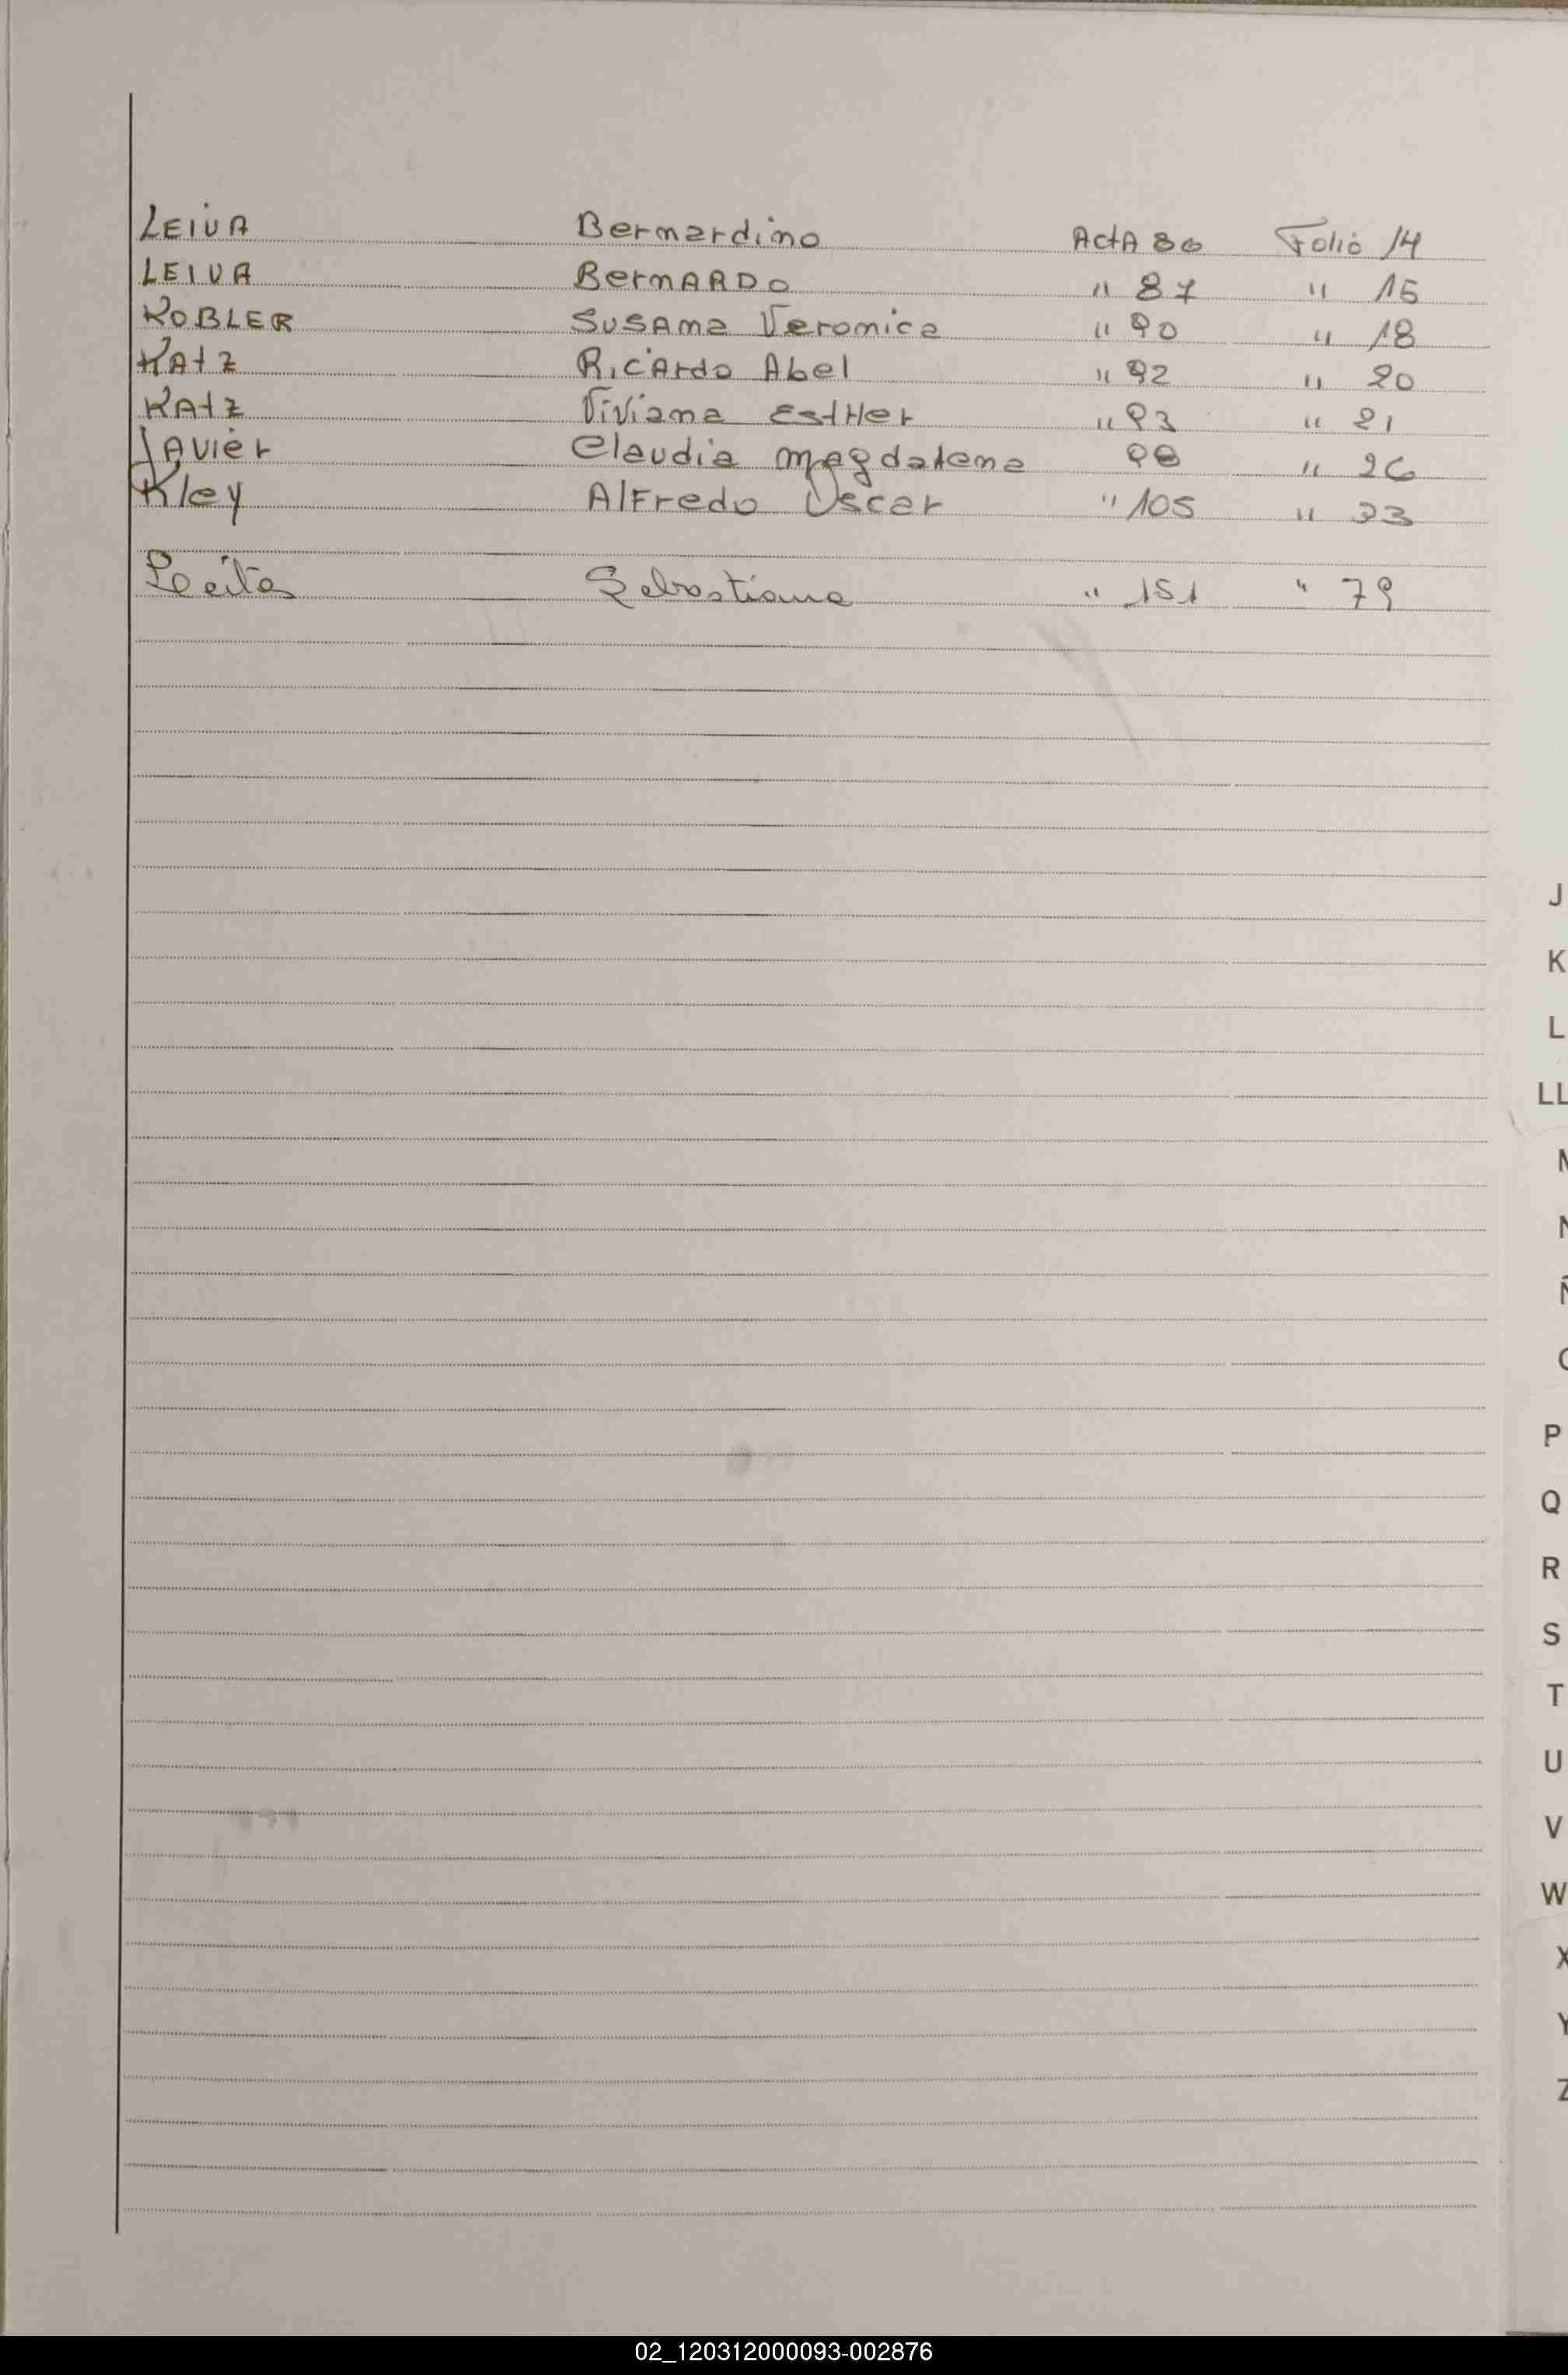 LEIVA Bernardino ActA 86 Folio 14
LEIVA BernARDo " 87 " 15
KOBLER SusAna Veronica " 90 " 18
KAtz RicArdo Abel " 92 " 20
KAtz Viviana EstHer " 93 " 21
JAvier Claudia magdalena 98 " 26
Kley AlFredo Oscar " 105 " 33
Leites Sebastiana " 151 " 79
J
K
L
LL
M
N
Ñ
O
P
Q
R
S
T
U
V
W
X
Y
Z
02_120312000093-002876